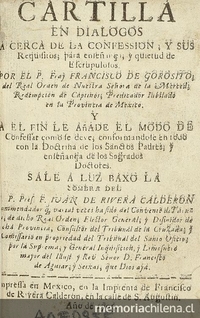 CARTILLA
EN DIALOGOS
A CERCA DE LA CONFESSION, Y SUS
Requisitos, para enseñança, y quietud de
Escrupulosos.
POR EL P. Fray FRANCISCO DE GOROSITO,
del Real Orden de Nuestra Señora de la Merced,
Redempcion de Captivos, Predicador Jubilado
en la Provincia de Mexico.
Y
A EL FIN LE AÑADE EL MODO DE
Confessar como se deve, conformandose en todo
con la Doctrina de los Sanctos Padres, y
enseñança de los Sagrados
Doctores.
SALE A LUZ BAXO LA
SOMBRA DEL
IVAN DE RIVERA CALDERON
que
Convento de
de dicho Real Orden, Elector General, y Difinidor de
Provincia, Consultor del Tribunal de la Cruzada, y
en propriedad del Tribunal del Santo Oficio
por la Suprema, y General Inquisicion, y
mayor del Señor D. Francisco
de Aguiar, y Seixas, que Dios aja.
en Mexico, en la Imprenta de Francisco
de Rivera Calderon, en la calle de S. Augustin.
Año de
www.memoriachilena.cl